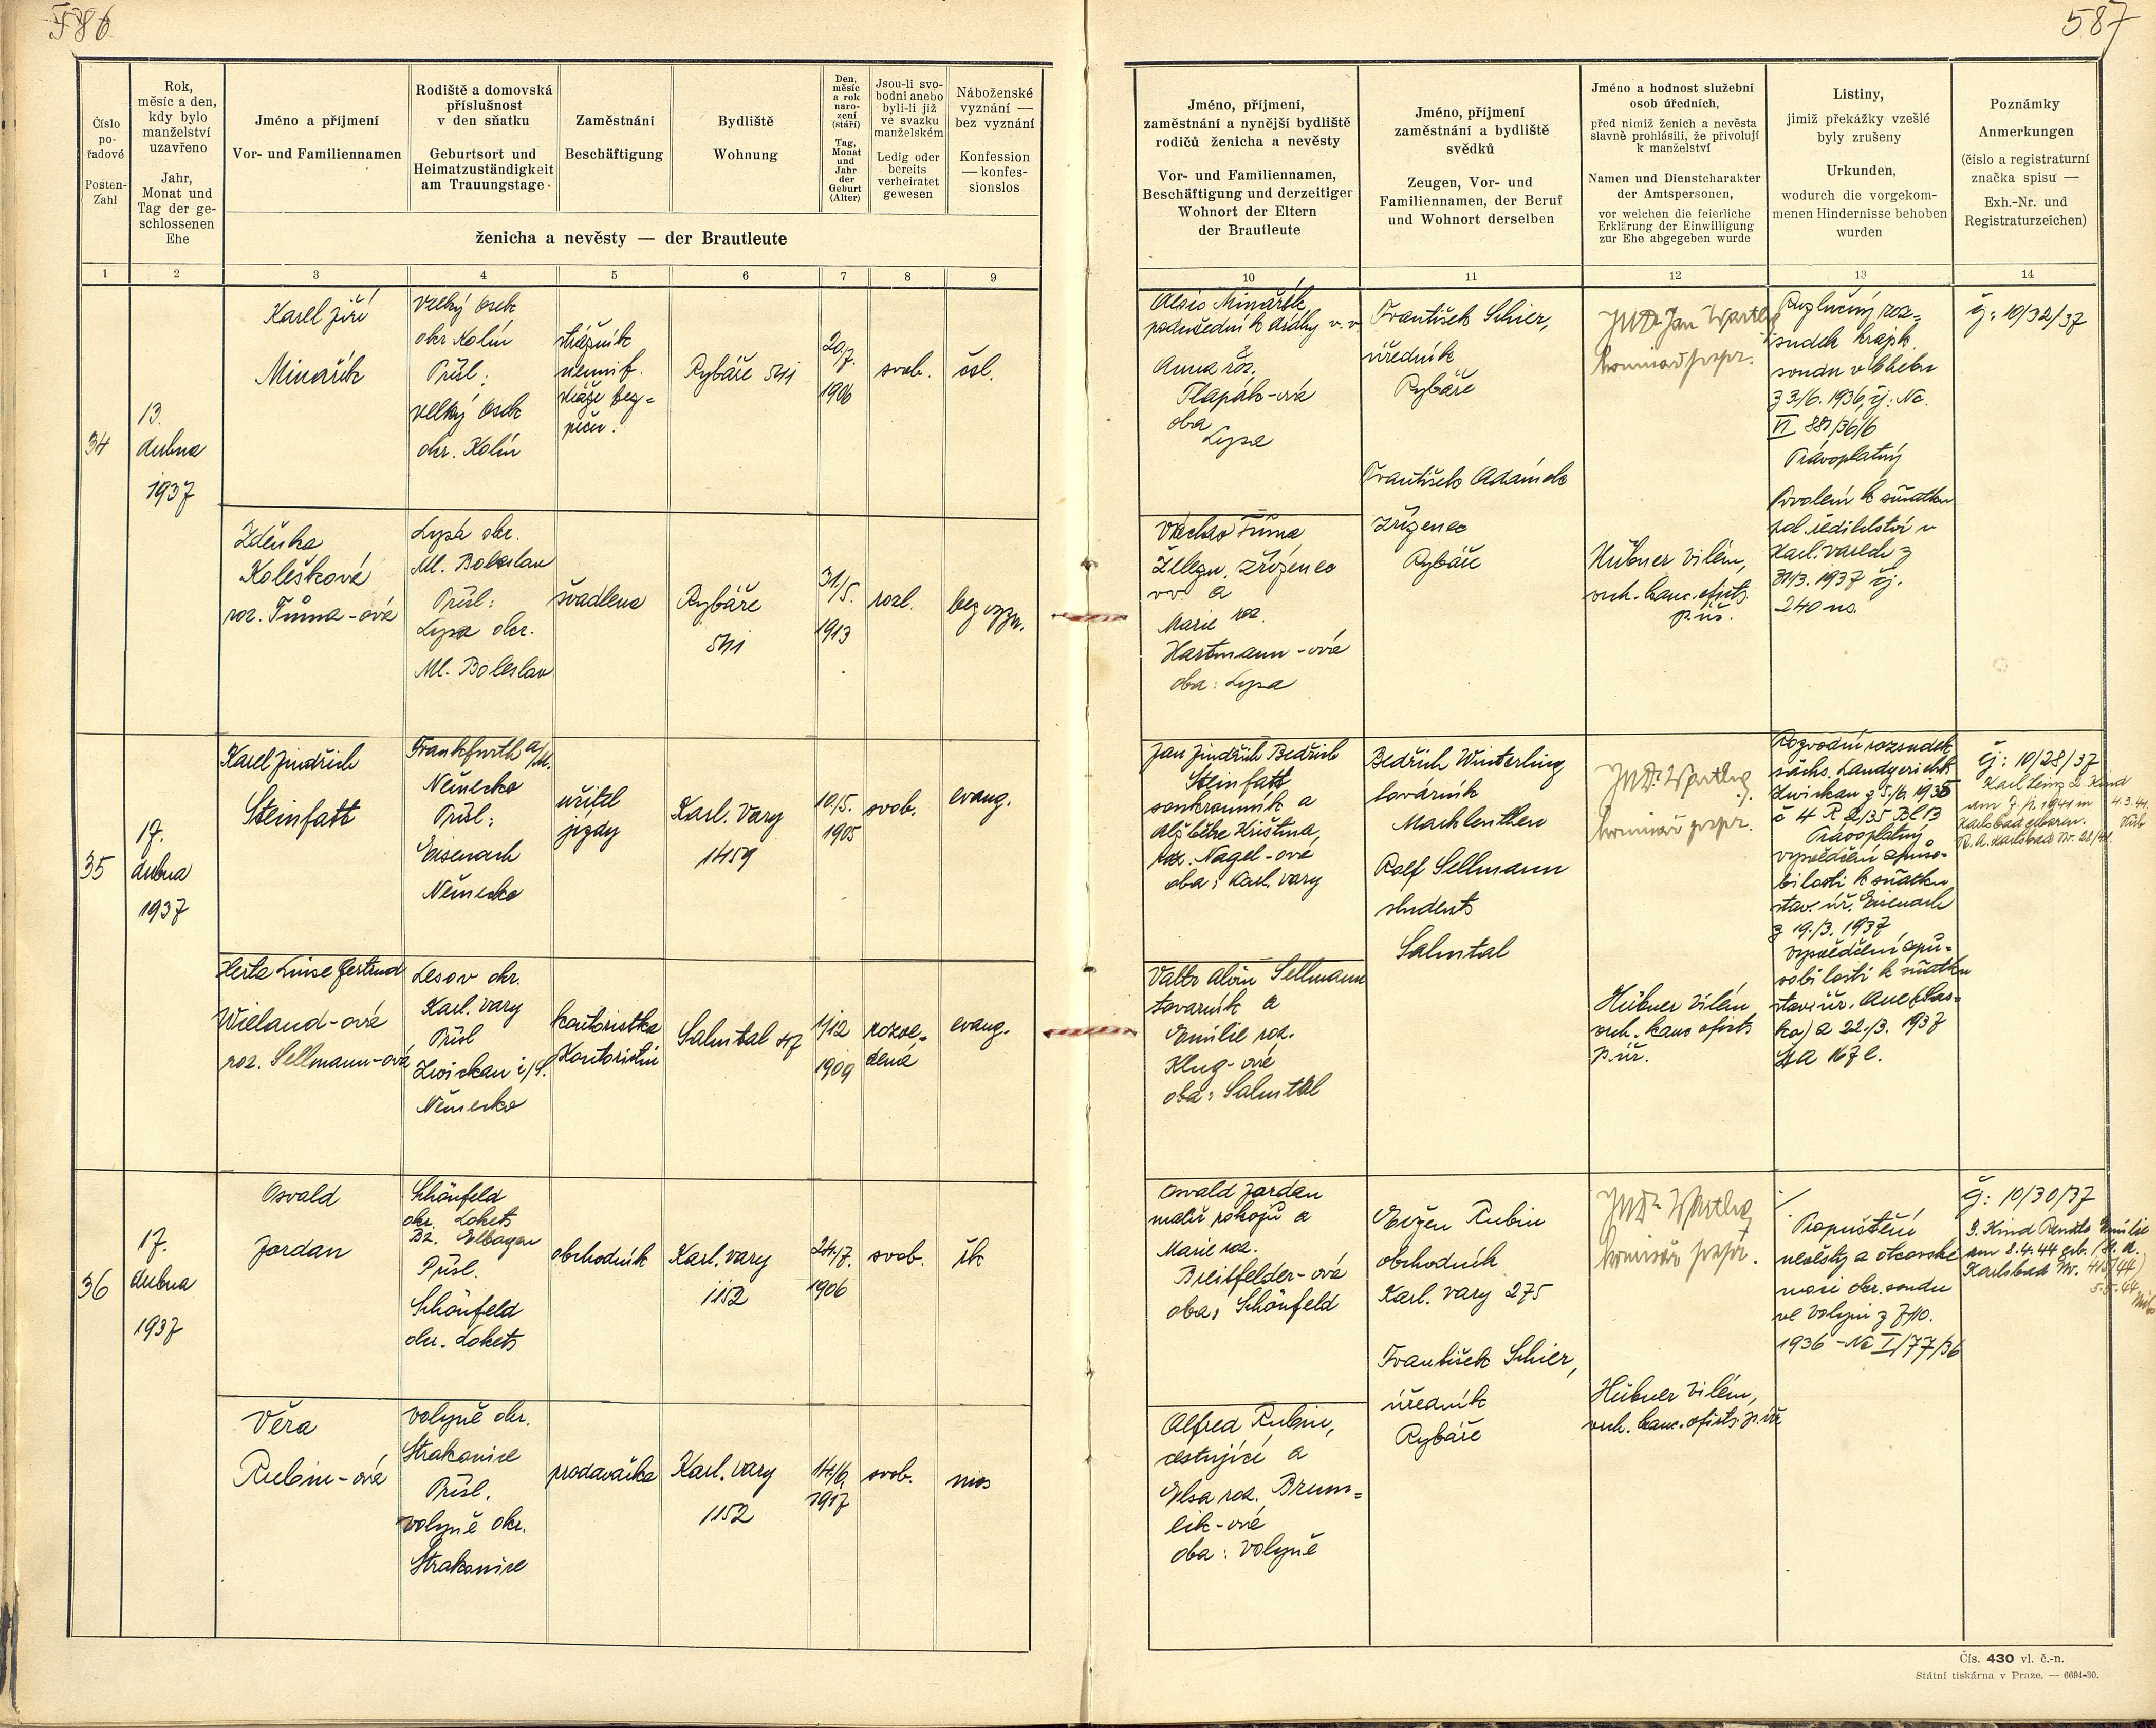 586
587
Číslo
po-
řadové
Posten-
Zahl
Rok,
měsíc a den,
kdy bylo
manželství
uzavřeno
Jahr,
Monat und
Tag der ge-
schlossenen
Ehe
Jméno a příjmení
Vor- und Familiennamen
Rodiště a domovská
příslušnost
v den sňatku
Geburtsort und
Heimatzuständigkeit
am Trauungstage
Zaměstnání
Beschäftigung
Bydliště
Wohnung
Den,
měsíc
a rok
naro-
zení
(stáří)
Tag,
Monat
und
Jahr
der
Geburt
(Alter)
Jsou-li svo-
bodni anebo
byli-li již
ve svazku
manželském
Ledig oder
bereits
verheiratet
gewesen
Náboženské
vyznání —
bez vyznání
Konfession
— konfes-
sionslos
ženicha a nevěsty — der Brautleute
Jméno, příjmení,
zaměstnání a nynější bydliště
rodičů ženicha a nevěsty
Vor- und Familiennamen,
Beschäftigung und derzeitiger
Wohnort der Eltern
der Brautleute
Jméno, příjmení
zaměstnání a bydliště
svědků
Zeugen, Vor- und
Familiennamen, der Beruf
und Wohnort derselben
Jméno a hodnost služební
osob úředních,
před nimiž ženich a nevěsta
slavně prohlásili, že přivolují
k manželství
Namen und Dienstcharakter
der Amtspersonen,
vor welchen die feierliche
Erklärung der Einwilligung
zur Ehe abgegeben wurde
Listiny,
jimiž překážky vzešlé
byly zrušeny
Urkunden,
wodurch die vorgekom-
menen Hindernisse behoben
wurden
Poznámky
Anmerkungen
(číslo a registraturní
značka spisu —
Exh.-Nr. und
Registraturzeichen)
1 2 3 4 5 6 7 8 9 10 11 12 13 14
34
13.
dubna
1937
Karel Jiří
Minařík
Velký Osek
okr Kolín
Přísl:
Velký Osek
okr. Kolín
strážník
Rybáře 541
20/7.
1906
svob.
čsl.
Alois Minařík
Anna roz.
Tlapák-ová
oba
Lysa
František Schier,
úředník
Rybáře
František Adámek
zřízenec
Rybáře
JUDr Jan Wartha
Rozlučný roz-
sudek krajsk.
soudu v Chebu
z 3/6. 1936, čj: Nc.
VI 881/36/6
Právoplatný
Povolení k sňatku
pol. ředitelství v
Karl. Varech z
31/3. 1937 čj.
čj: 10/32/37
Zdeňka
Kolešková
roz. Tůma-ová
Lysá okr.
Ml. Boleslav
Přísl:
Lysa okr.
Ml. Boleslav
švadlena
Rybáře
541
31/5.
1913
rozl.
bez vyzn.
Václav Tůma
Železn. zřízenec
vv a
Marie roz.
Hartmann-ová
oba: Lysa
Hübner Vilém,
vrch. kanc. oficis
35
17.
dubna
1937
Karel Jindřich
Steinfatt
Frankfurth a/M.
Německo
Přísl:
Eisenach
Německo
učitel
jízdy
Karl. Vary
1459
10/5.
1905
svob.
evang.
Jan Jindřich Bedřich
Steinfatt
soukromník a
Alžběta Kristina,
roz. Nagel-ová
oba: Karl. Vary
Bedřich Winterling
továrník
Rolf Sellmann
students
Salmtal
JUDr. Wartha
Rozvodní rozsudek
sächs. Landgerichts
Zwickau z 5./6. 1935
č 4 R 2/35 Bl 13
Právoplatný
vysvědčení způso-
bilosti k sňatku
stav. úř. Eisenach
z 19./3. 1937
vysvědčení způ-
sobilosti k sňatku
z 22./3. 1937
čj: 10/28/37
Karlsbad geboren.
Herta Luise Gertrud
Wieland-ová
roz. Sellmann-ová
Lesov okr.
Karl. Vary
Přísl
Zwickau i/S.
Německo
kontoristka
Kontoristin
Salmtal 47
1/12
1909
rozve-
dená
evang.
Valtr Alvin Sellmann
továrník a
Emilie roz.
Klug-ová
oba: Salmtal
Hübner Vilém
vrch. kanc oficis
36
17.
dubna
1937
Osvald
Jordan
Schönfeld
okr. Lokets
Bz. Elbogen
Přísl.
Schönfeld
okr. Lokets
obchodník
Karl. Vary
1152
24./7.
1906
svob.
řk
Osvald Jordan
malíř pokojů a
Marie roz.
Breitfelder-ová
oba: Schönfeld
Evžen Rubin
obchodník
Karl. Vary 275
František Schier,
úředník
Rybáře
JUDr Wartha
Propuštění
nevěsty z otcovské
moci okr. soudu
ve Volyni z 7/10.
1936 - Nc I/77/36
čj: 10/30/37
am 8.4.44 geb.
Karlsbad Nr. 415/44)
Věra
Rubin-ová
Volyně okr.
Strakonice
Přísl.
Volyně okr.
Strakonice
prodavačka
Karl. Vary
1152
14./6.
1917
svob.
mos
Alfred Rubin,
cestující a
Elsa roz. Brum-
lik-ová
oba: Volyně
Hübner Vilém,
vrch. kanc. oficis
Čís. 430 vl. č.-n.
Státní tiskárna v Praze. — 6694-30.